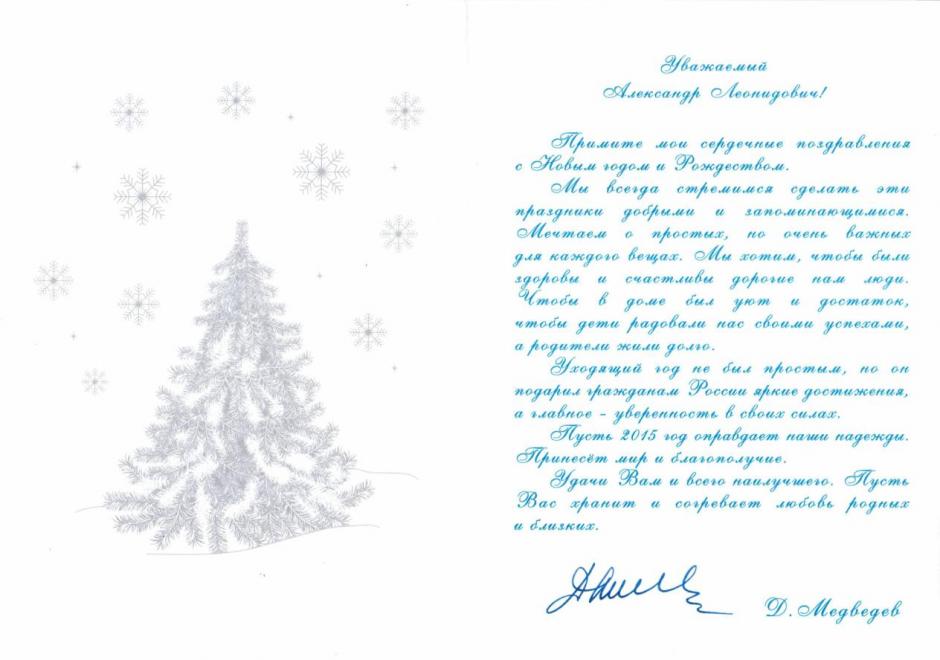 Уважаемый
Александр Леонидович!
Примите мои сердечные поздравления
с Новым годом и Рождеством.
Мы всегда стремимся сделать эти
праздники добрыми и запоминающимися.
Мечтаем о простых, но очень важных
для каждого вещах. Мы хотим, чтобы были
здоровы и счастливы дорогие нам люди.
Чтобы в доме был уют и достаток,
чтобы дети радовали нас своими успехами,
а родители жили долго.
Уходящий год не был простым, но он
подарил гражданам России яркие достижения,
а главное - уверенность в своих силах.
Пусть 2015 год оправдает наши надежды.
Принесёт мир и благополучие.
Удачи Вам и всего наилучшего. Пусть
Вас хранит и согревает любовь родных
и близких.
Д. Медведев